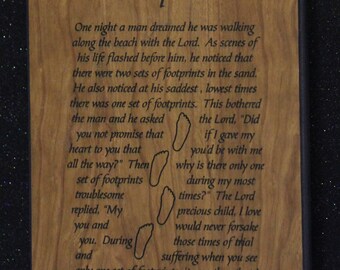 One night a man dreamed he was walking
along the beach with the Lord. As scenes of
his life flashed before him, he noticed that
there were two sets of footprints in the sand.
He also noticed at his saddest, lowest times
there was one set of footprints. This bothered
the man and he asked the Lord, "Did
you not promise that if I gave my
heart to you that you'd be with me
all the way?" Then why is there only one
set of footprints during my most
troublesome times?" The Lord
replied, "My precious child, I love
you and would never forsake
you. During those times of trial
and suffering when you see